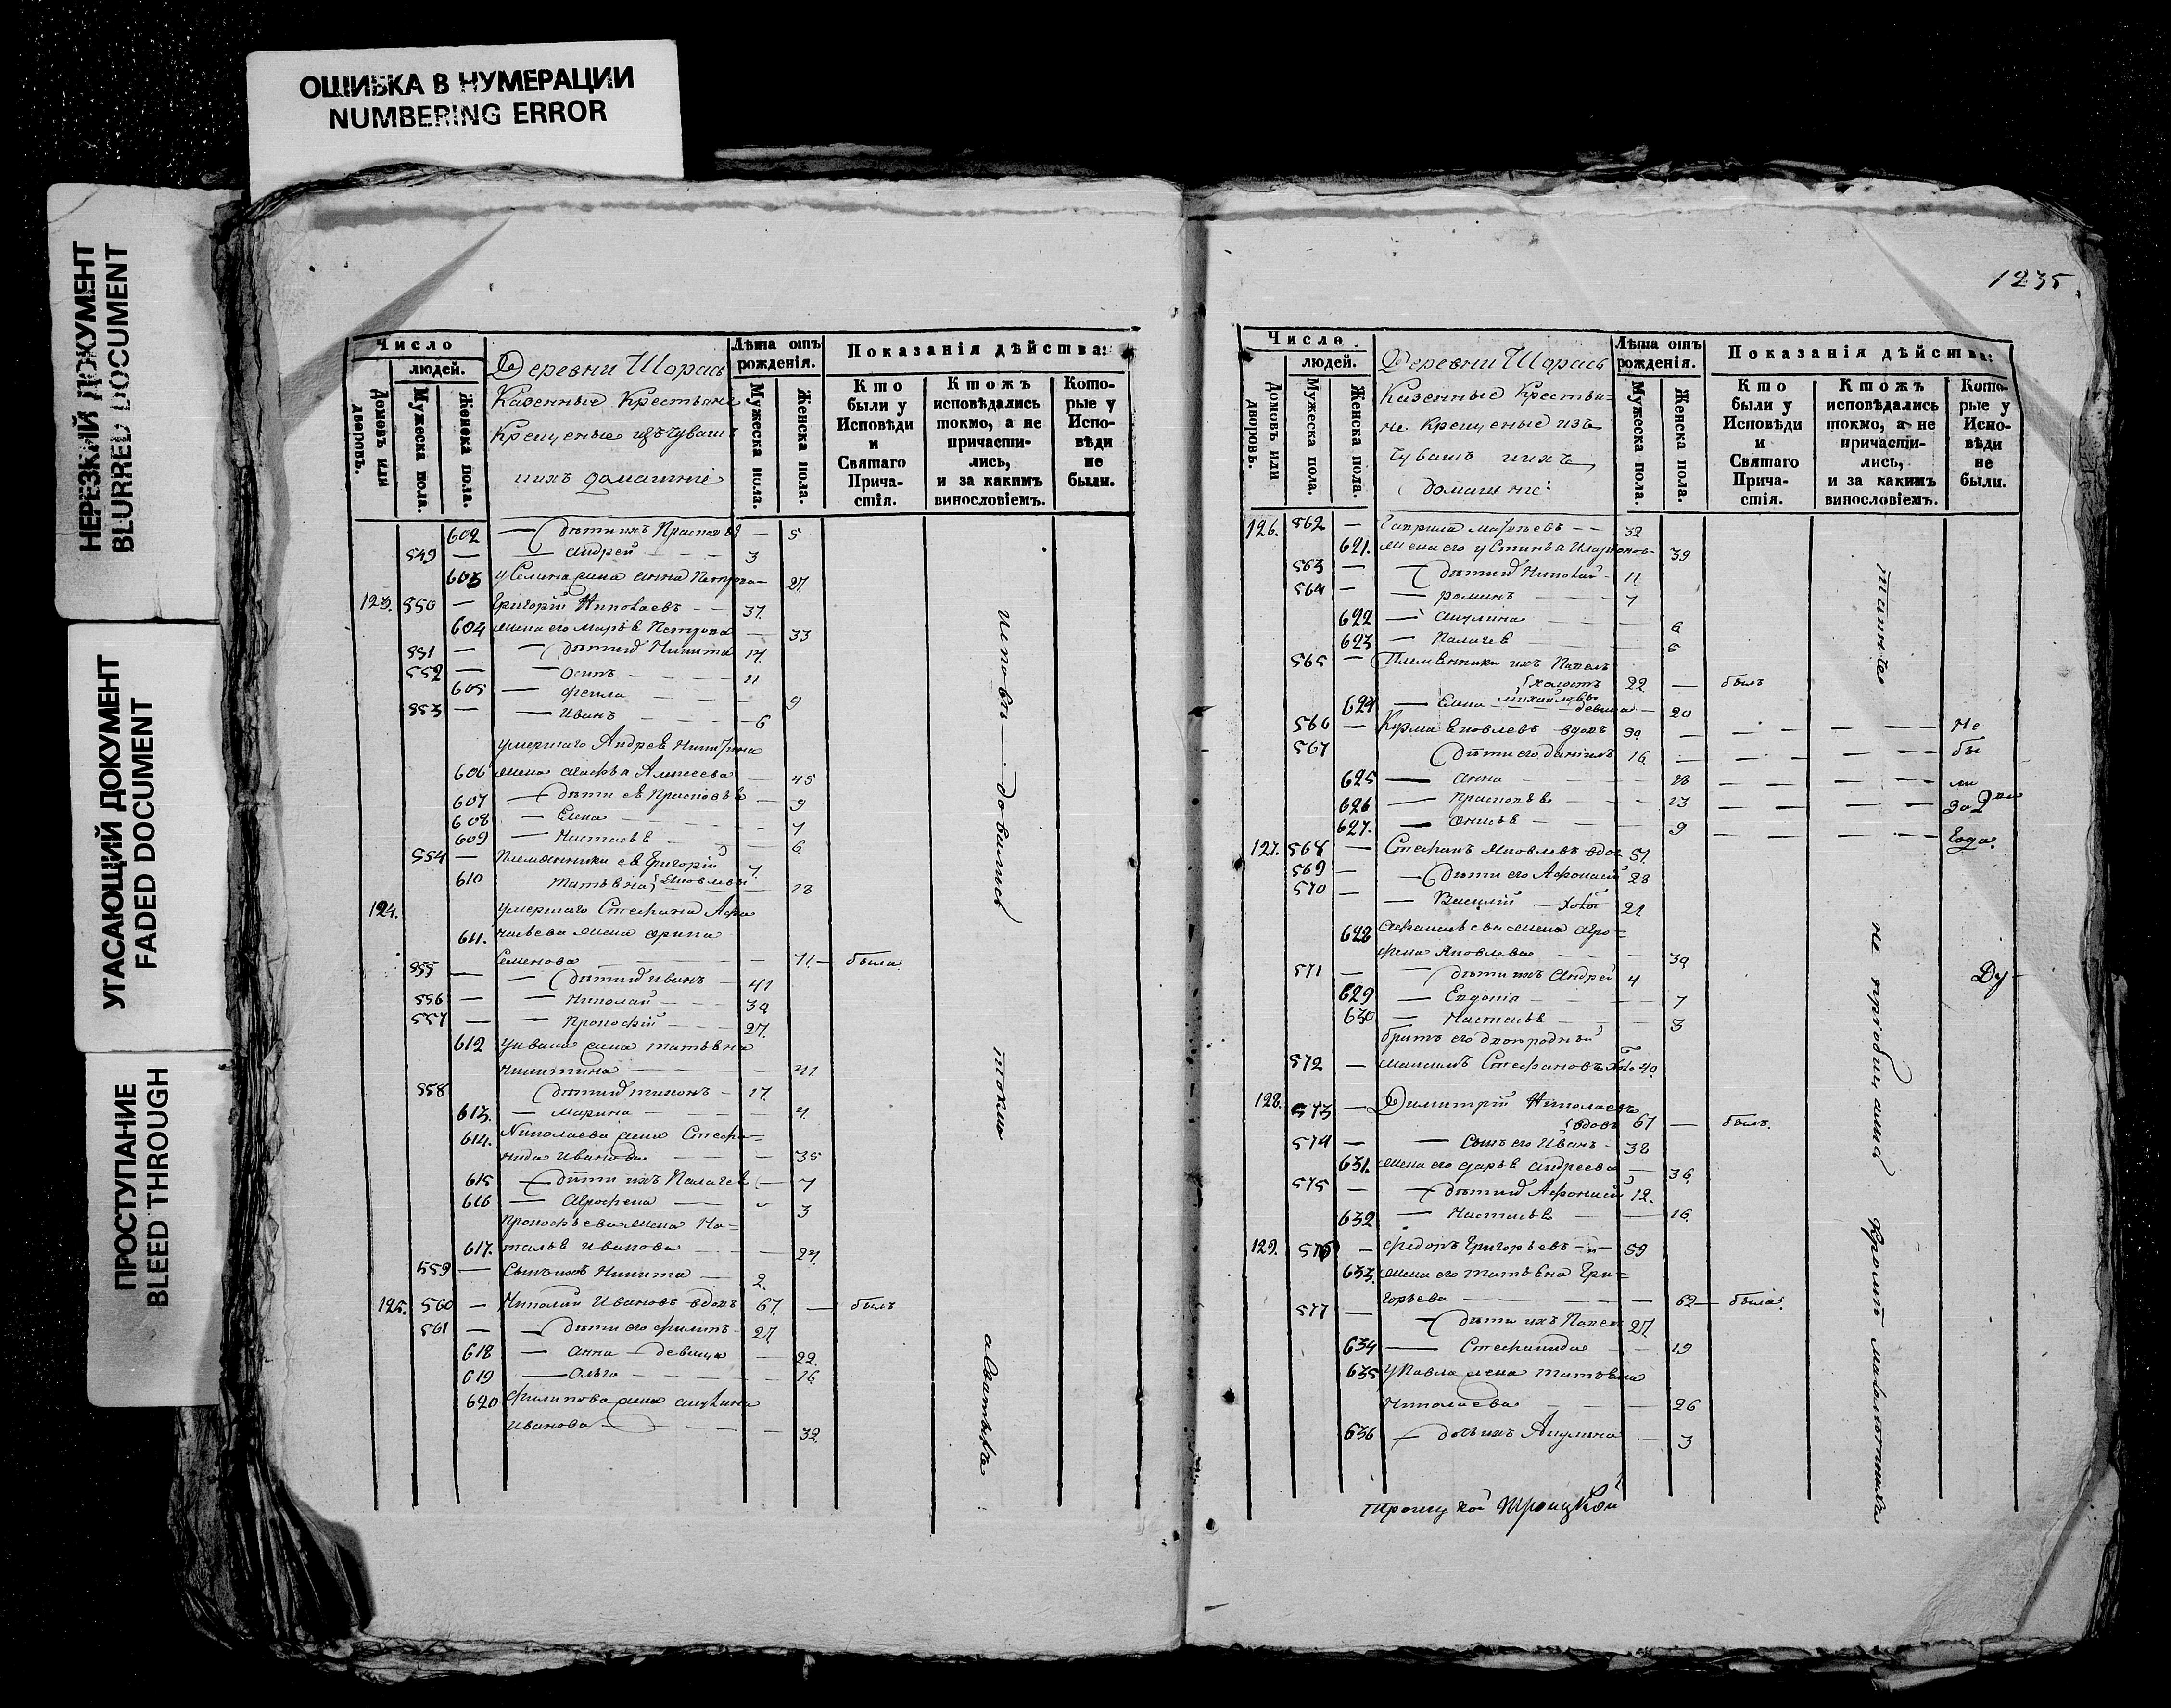 ОШИБКА В НУМЕРАЦИИ
NUMBERING ERROR
НЕРЕЗКИЙ ДОКУМЕНТ
BLURRED DOCUMENT
УГАСАЮЩИЙ ДОКУМЕНТ
FADED DOCUMENT
ПРОСТУПАНИЕ
BLEED THROUGH
Число
людей.
Домовъ или дворовъ.
Мужеска пола.
Женска пола.
Деревни Шорась
Казенные Крестьяне
Крещеные изъ чувашъ
ихъ домашніе
Лѣта отъ рожденія.
Мужеска пола.
Женска пола.
Показанія дѣйства:
Кто были у Исповѣди и Святаго Причастія.
Ктожъ исповѣдались токмо, а не причастились, и за какимъ винословіемъ.
Которые у Исповѣди не были.
602 — дѣти ихъ Прасковья — 5
549 — Андрей 3
603 Жена Анна Петрова 27
123. 550 — Григорій Николаевъ 37
604 жена его Марья Петрова — 33
551 — дѣти ихъ Никита 14
552 — Осипъ 11
605 — Фекла 9
553 — Иванъ 6
умершаго Андрея
606 жена Агафья Алексеева — 45
607 — дѣти ея Прасковья — 9
608 — Елена 7
609 — Настасья 6
554 — Племянники ея Григорій 7
610 Татьяна Яковлевы 18
124. умершаго Стефана Афа
611. насьева жена Ирина
Семенова 71 — была
555 — дѣти ихъ Иванъ 41
556 — Николай 39
557 — Прокофій 27
612 Ивана жена Татьяна
Никитина 41
558 дѣти ихъ Тихонъ 17
613. — Марина 7
614. Николаева жена Стефа=
нида Иванова 35
615 — дѣти ихъ Палагея 7
616 — Агрофена 3
Прокофьева жена На=
617. талья Иванова 27
559 — Сынъ ихъ Никита 2
125. 560 — Николай Ивановъ вдовъ 67 — былъ
561 — дѣти его Филипъ 27
618 — Анна девица — 22
619 — Ольга 16
620 Филипова жена Акулина
Иванова 32
исповѣдовались
токмо
а Святыхъ
1235
Число
людей.
Домовъ или дворовъ.
Мужеска пола.
Женска пола.
Деревни Шорась
Казенные Крестья=
не Крещеные изъ
Чувашъ ихъ
домашніе
Лѣта отъ рожденія.
Мужеска пола.
Женска пола.
Показанія дѣйства:
Кто были у Исповѣди и Святаго Причастія.
Ктожъ исповѣдались токмо, а не причастились, и за какимъ винословіемъ.
Которые у Исповѣди не были.
126. 562 — Гаврила Матвѣевъ 32
621. жена его Устинья Иларионов 39
563 — дѣти ихъ Николай 11
564 — Романъ 7
622 — Акулина 6
623 — Палагея 6
565 — Племянники ихъ Павелъ
холостъ 22 — былъ
624 — Елена Михайловы девица 20
566 — Кузма Яковлевъ вдовъ 39 — Не
567 дѣти его Данилъ 16 — бы
625 — Анна 18 — ли
626 — Прасковья 13 — до 2
627. — Анисья 9 — года.
127. 568 — Стефанъ Яковлевъ вдов 51
569 — дѣти его Афонасій 28
570 — Василий холос 21
628 Афанасьева жена Агро=
фена Яковлева 39
571 — дѣти ихъ Андрей 4
629 — Евдокія 7
630 — Настасья 3
братъ его двоюродный
572 — Максимъ Стефановъ 40
128. 573 — Димитрій Николаевъ
вдовъ 67 — былъ
574 — Сынъ его Иванъ 38
631. жена его Дарья Андреева 36
575 — дѣти ихъ Афонасій 12
632 — Настасья 16
129. 576 — Федоръ Григорьевъ 59
633. жена его Татьяна Гри=
горьева 62 — была
577 — дѣти ихъ Павелъ 27
634 — Стефанида 19
635 У Павла жена Татьяна
Николаева 26
636 — дочь ихъ Акулина 3
таинъ
не пріобщались
кромѣ малолѣтныхъ
Ду
Троицкой Троицкой